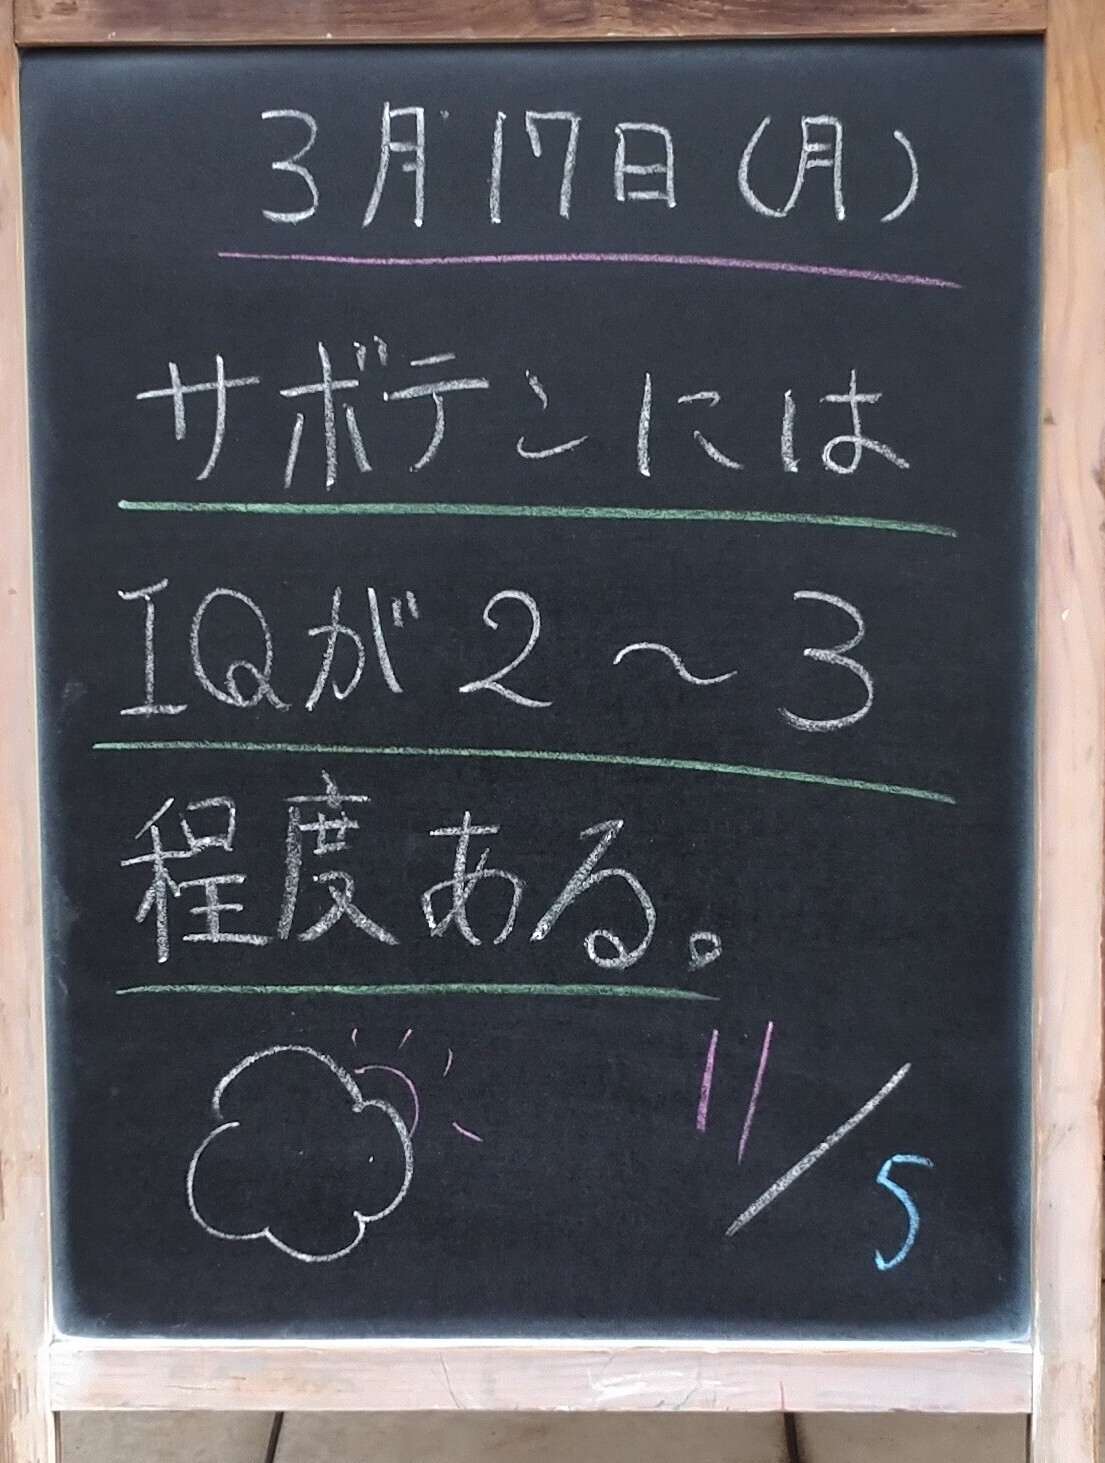 3月17日(月)
サボテンには
IQが2〜3
程度ある。
11/5